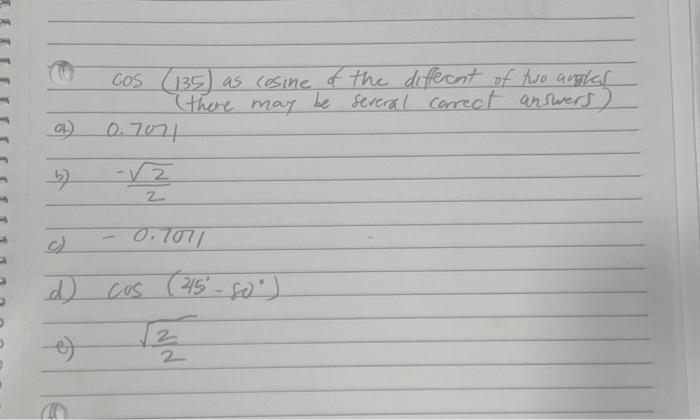 cos (135) as cosine of the differnt of two angles
(there may be several correct answers)
a) 0.7071
b) -√2/2
c) - 0.7071
d) cos (215° - 80°)
e) √2/2